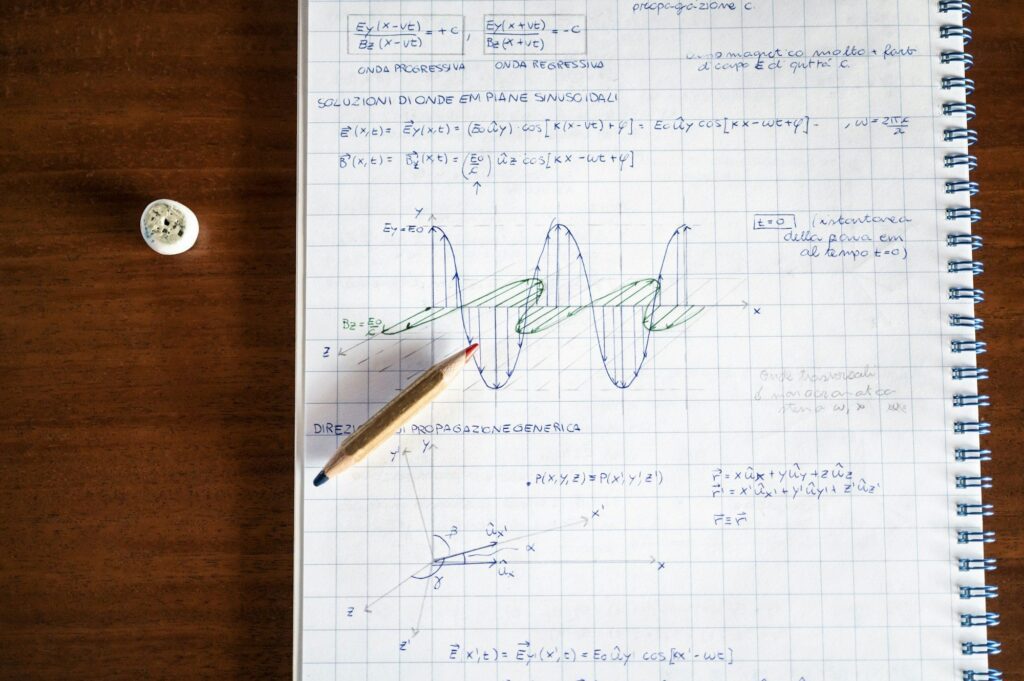 propagazione c.
Ey(x-vt)/Bz(x-vt) = +c , Ey(x+vt)/Bz(x+vt) = -c
ONDA PROGRESSIVA ONDA REGRESSIVA
magnetico molto + forte
d'campo E d' quttá c.
SOLUZIONI DI ONDE EM PIANE SINUSOIDALI
E⃗(x,t) = E⃗y(x,t) = (E0 ûy) · cos[k(x-vt)+φ] = E0 ûy cos[kx-ωt+φ] - , ω = 2πc/λ
B⃗(x,t) = B⃗z(x,t) = (E0/c) ûz cos[kx-ωt+φ]
↑
y
Ey=E0
t=0 (istantanea
della piana em
al tempo t=0)
x
Bz=E0/c
z
Onde trasversali
DIREZIONE DI PROPAGAZIONE GENERICA
y' y
P(x,y,z) ≡ P(x',y',z')
r⃗ = x ûx + y ûy + z ûz
r⃗' = x' ûx' + y' ûy' + z' ûz'
x'
r⃗ ≡ r⃗'
β ûx'
α
ûx x
γ
z
z'
E⃗(x',t) = E⃗y'(x',t) = E0 ûy' cos[kx'-ωt]